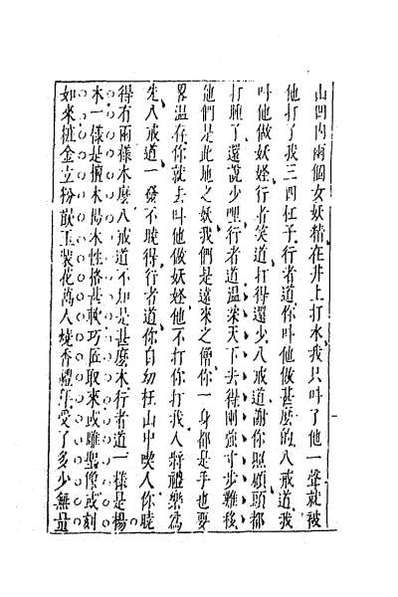 山凹內兩個女妖精在井上打水我只叫了他一聲就被
他打了我三四杠子行者道你叫他做甚麽的八戒道我
叫他做妖怪行者笑道打得還少八戒道謝你照顧頭都
打腫了還說少哩行者道溫柔天下去得剛強寸步難移
他們是此地之妖我們是遠來之僧你一身都是手也要
畧溫存你就去叫他做妖怪他不打你打我人將禮樂爲
先八戒道一發不曉得行者道你自幼在山中喫人你曉
得有兩樣木麽八戒道不知是甚麽木行者道一樣是楊
木一樣是檀木楊木性格甚軟巧匠取來或雕聖像或刻
如來粧金立粉嵌玉裝花萬人燒香禮拜受了多少無量